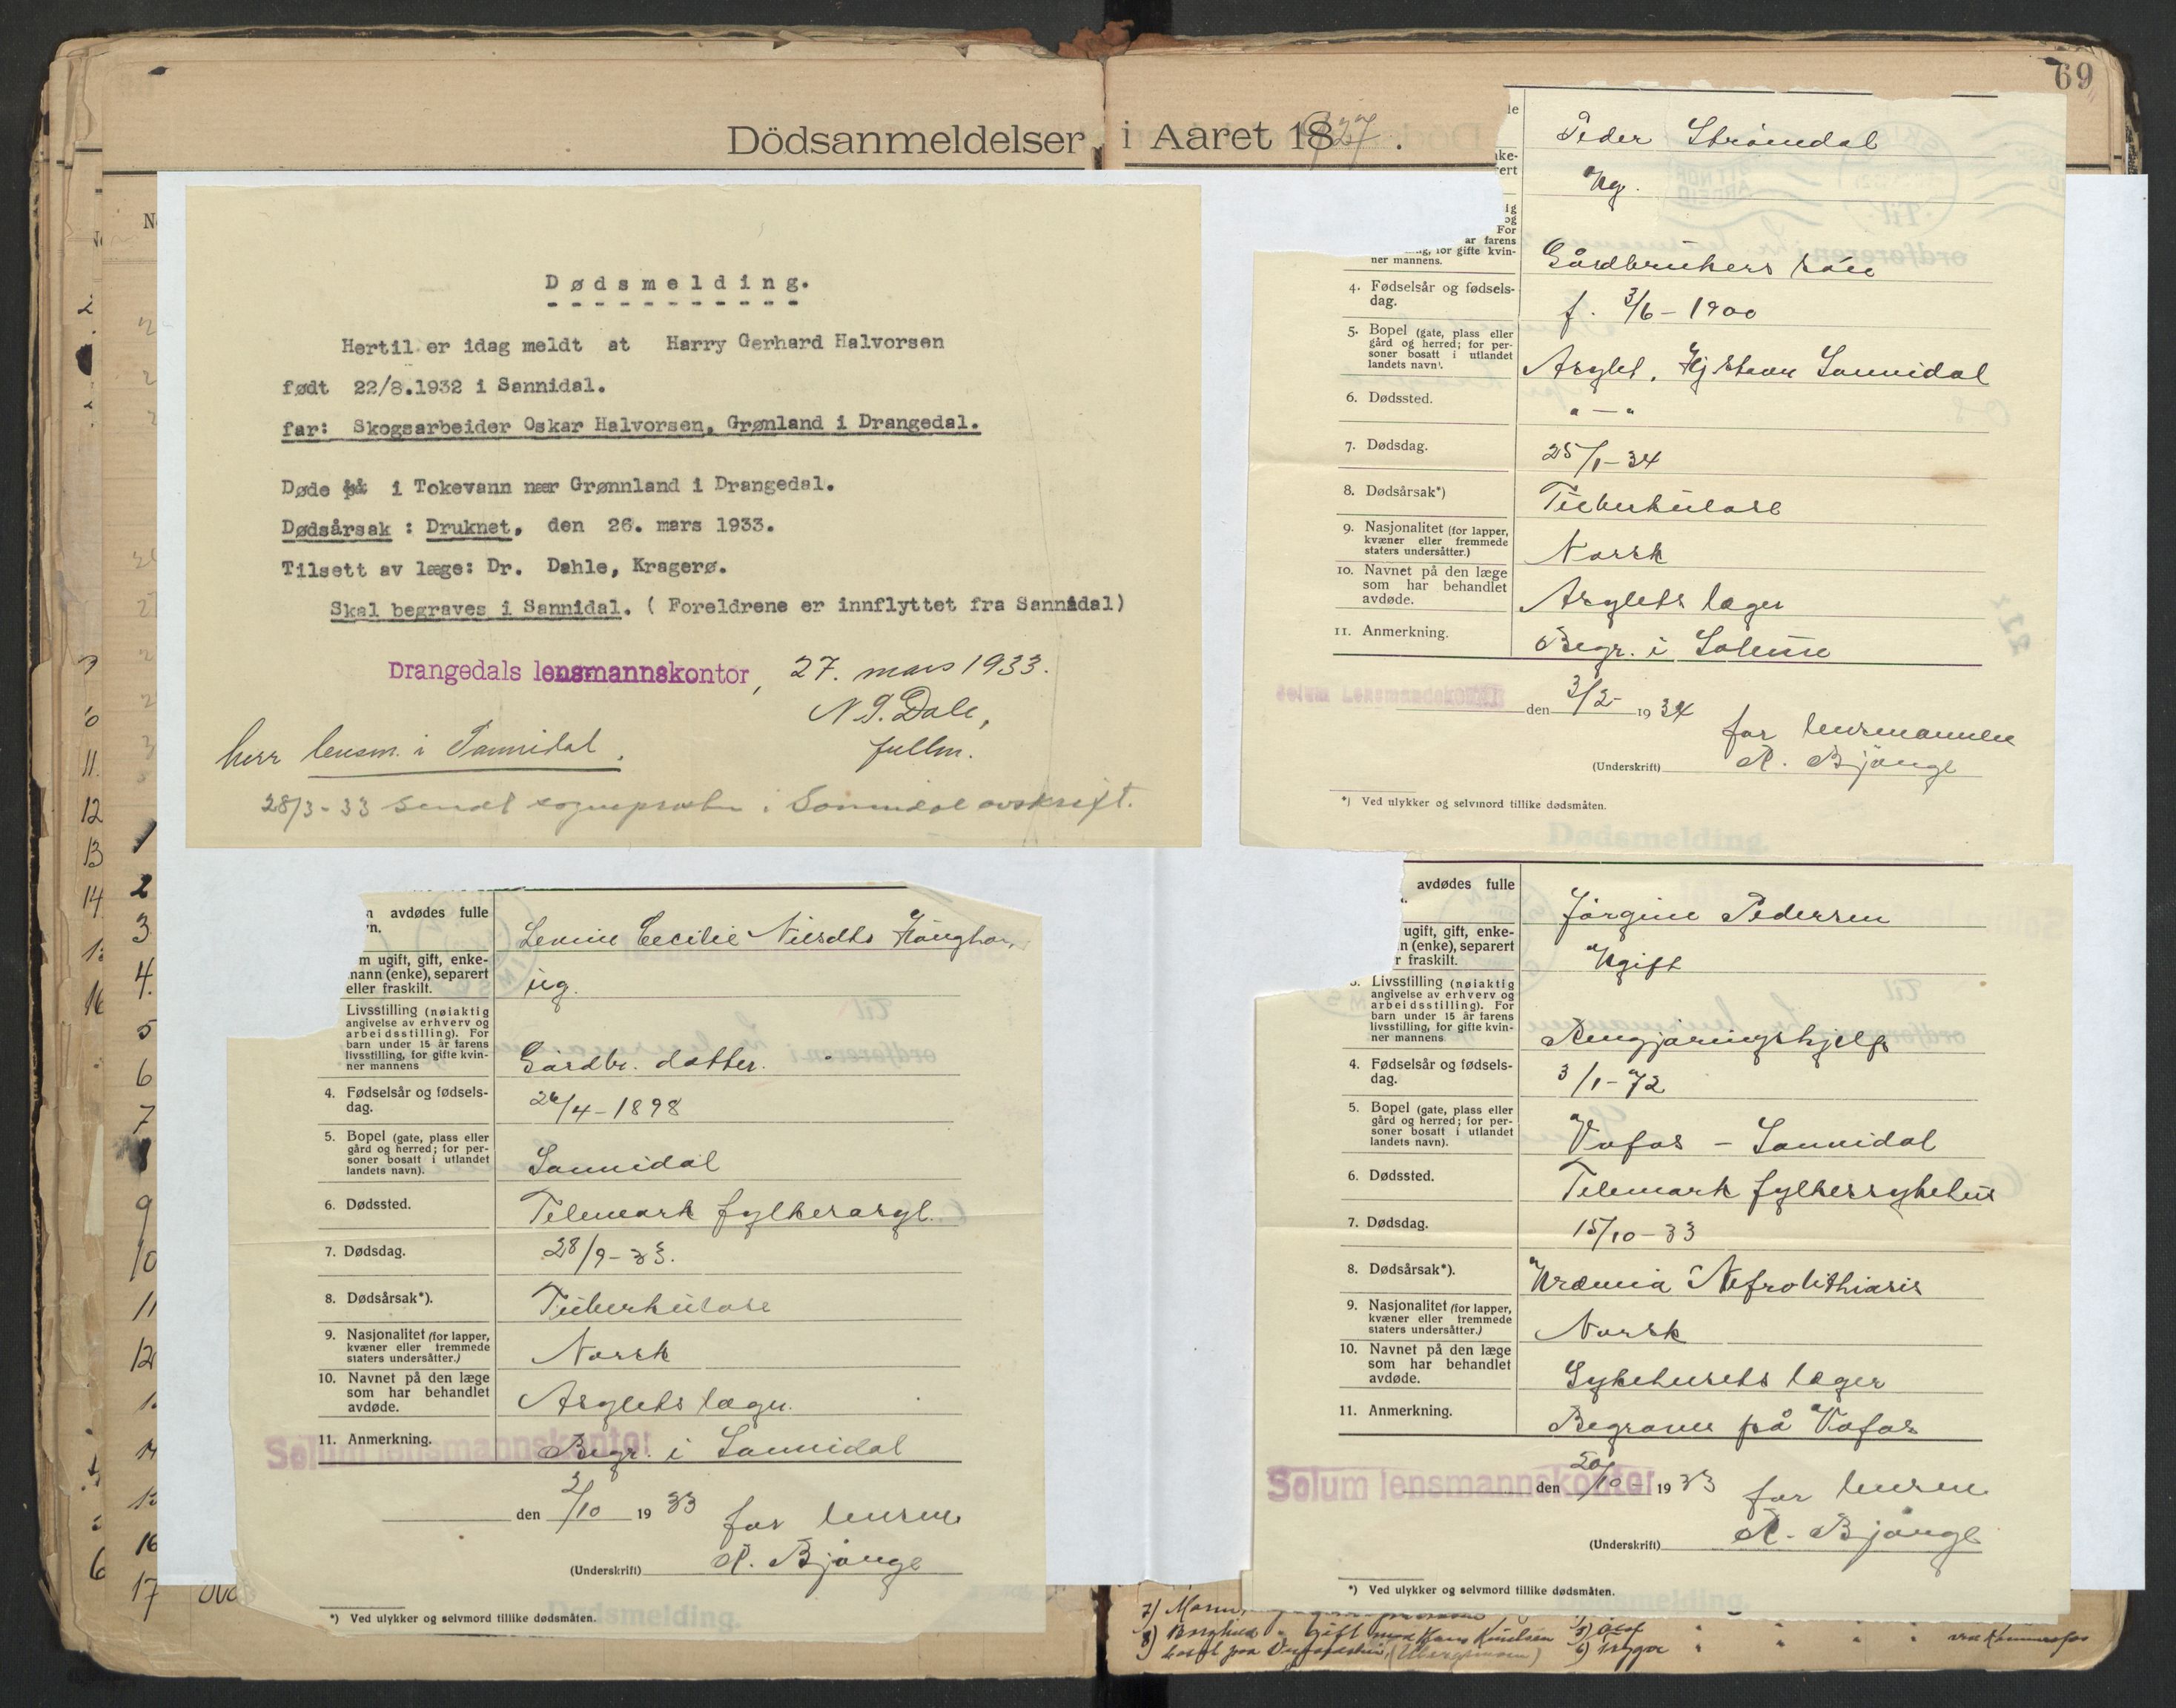 69
Dödsanmeldelser i Aaret 1927.
Dødsmelding.
Hertil er idag meldt at Harry Gerhard Halvorsen
født 22/8.1932 i Sannidal.
far: Skogsarbeider Oskar Halvorsen, Grønland i Drangedal.
Døde på i Tokevann nær Grønnland i Drangedal.
Dødsårsak : Druknet, den 26. mars 1933.
Tilsett av læge: Dr. Dahle, Kragerø.
Skal begraves i Sannidal. ( Foreldrene er innflyttet fra Sannidal)
Drangedals lensmannskontor, 27. mars 1933.
N. S. Dale,
fullm.
herr lensm. i Sannidal.
28/3-33 sendt sogneprosten i Sannidal avskrift.
n avdødes fulle
n. Lenvie Cecilie Nilsdts
m ugift, gift, enke-
nann (enke), separert
eller fraskilt. ug.
Livsstilling (nøiaktig
angivelse av erhverv og
arbeidsstilling). For
barn under 15 år farens
livsstilling, for gifte kvin-
ner mannens Gårdbr. datter.
4. Fødselsår og fødsels-
dag. 26/4-1898
5. Bopel (gate, plass eller
gård og herred; for per-
soner bosatt i utlandet
landets navn). Sannidal
6. Dødssted. Telemark fylkesasyl.
7. Dødsdag. 28/9-33.
8. Dødsårsak*). Tuberkulose
9. Nasjonalitet (for lapper,
kvæner eller fremmede
staters undersåtter.) Norsk
10. Navnet på den læge
som har behandlet
avdøde. Asylets læger.
11. Anmerkning. Begr. i Sannidal
Solum lensmannskontor
den 2/10 1933 for lensm.
(Underskrift) R. Bjønge
*) Ved ulykker og selvmord tillike dødsmåten.
Dødsmelding.
le Peder Strømdal
ke-
ert Ug.
ig
og
For
ar farens
ng, for gifte kvin-
ner mannens. Gårdbrukers søn
4. Fødselsår og fødsels-
dag. f. 3/6-1900
5. Bopel (gate, plass eller
gård og herred; for per-
soner bosatt i utlandet
landets navn). Asylet, Sannidal
6. Dødssted. " — "
7. Dødsdag. 25/1-34
8. Dødsårsak*) Tuberkulose
9. Nasjonalitet (for lapper,
kvæner eller fremmede
staters undersåtter.) Norsk
10. Navnet på den læge
som har behandlet
avdøde. Asylets læger
11. Anmerkning. Begr. i Solum
Solum Lensmandskontor
den 3/2- 1934 for lensmannen
(Underskrift) R. Bjønge
*) Ved ulykker og selvmord tillike dødsmåten.
Dødsmelding.
avdødes fulle
Jørgine Pedersen
ugift, gift, enke-
n (enke), separert
r fraskilt. Ugift
3. Livsstilling (nøiaktig
angivelse av erhverv og
arbeidsstilling). For
barn under 15 år farens
livsstilling, for gifte kvin-
ner mannens Rengjøringshjelp
4. Fødselsår og fødsels-
dag. 3/1-72
5. Bopel (gate, plass eller
gård og herred; for per-
soner bosatt i utlandet
landets navn). Vafos - Sannidal
6. Dødssted. Telemark fylkessykehus
7. Dødsdag. 15/10-33
8. Dødsårsak*). Uræmia Nefrolithiasis
9. Nasjonalitet (for lapper,
kvæner eller fremmede
staters undersåtter.) Norsk
10. Navnet på den læge
som har behandlet
avdøde. Sykehusets læger
11. Anmerkning. Begraves på Vafos
Solum lensmannskontor
den 20/10- 1933 for lensm.
(Underskrift) R. Bjønge
*) Ved ulykker og selvmord tillike dødsmåten.
Dødsmelding.
11.
12
13
14
16
1
2
3
4.
5
6
7
9
10
11
12
16
17
8) Borghild " gift med Hans Knudsen